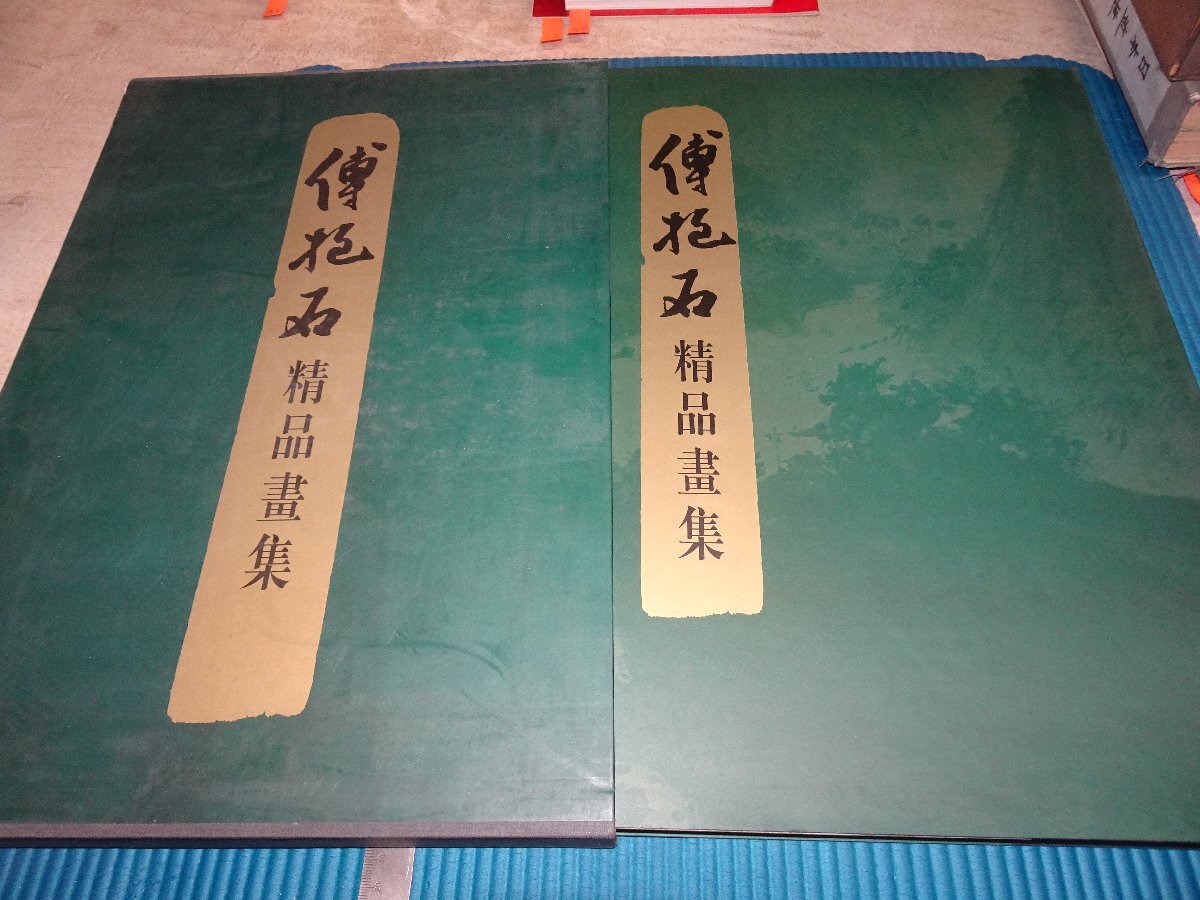 傅抱石精品畫集
傅抱石精品畫集